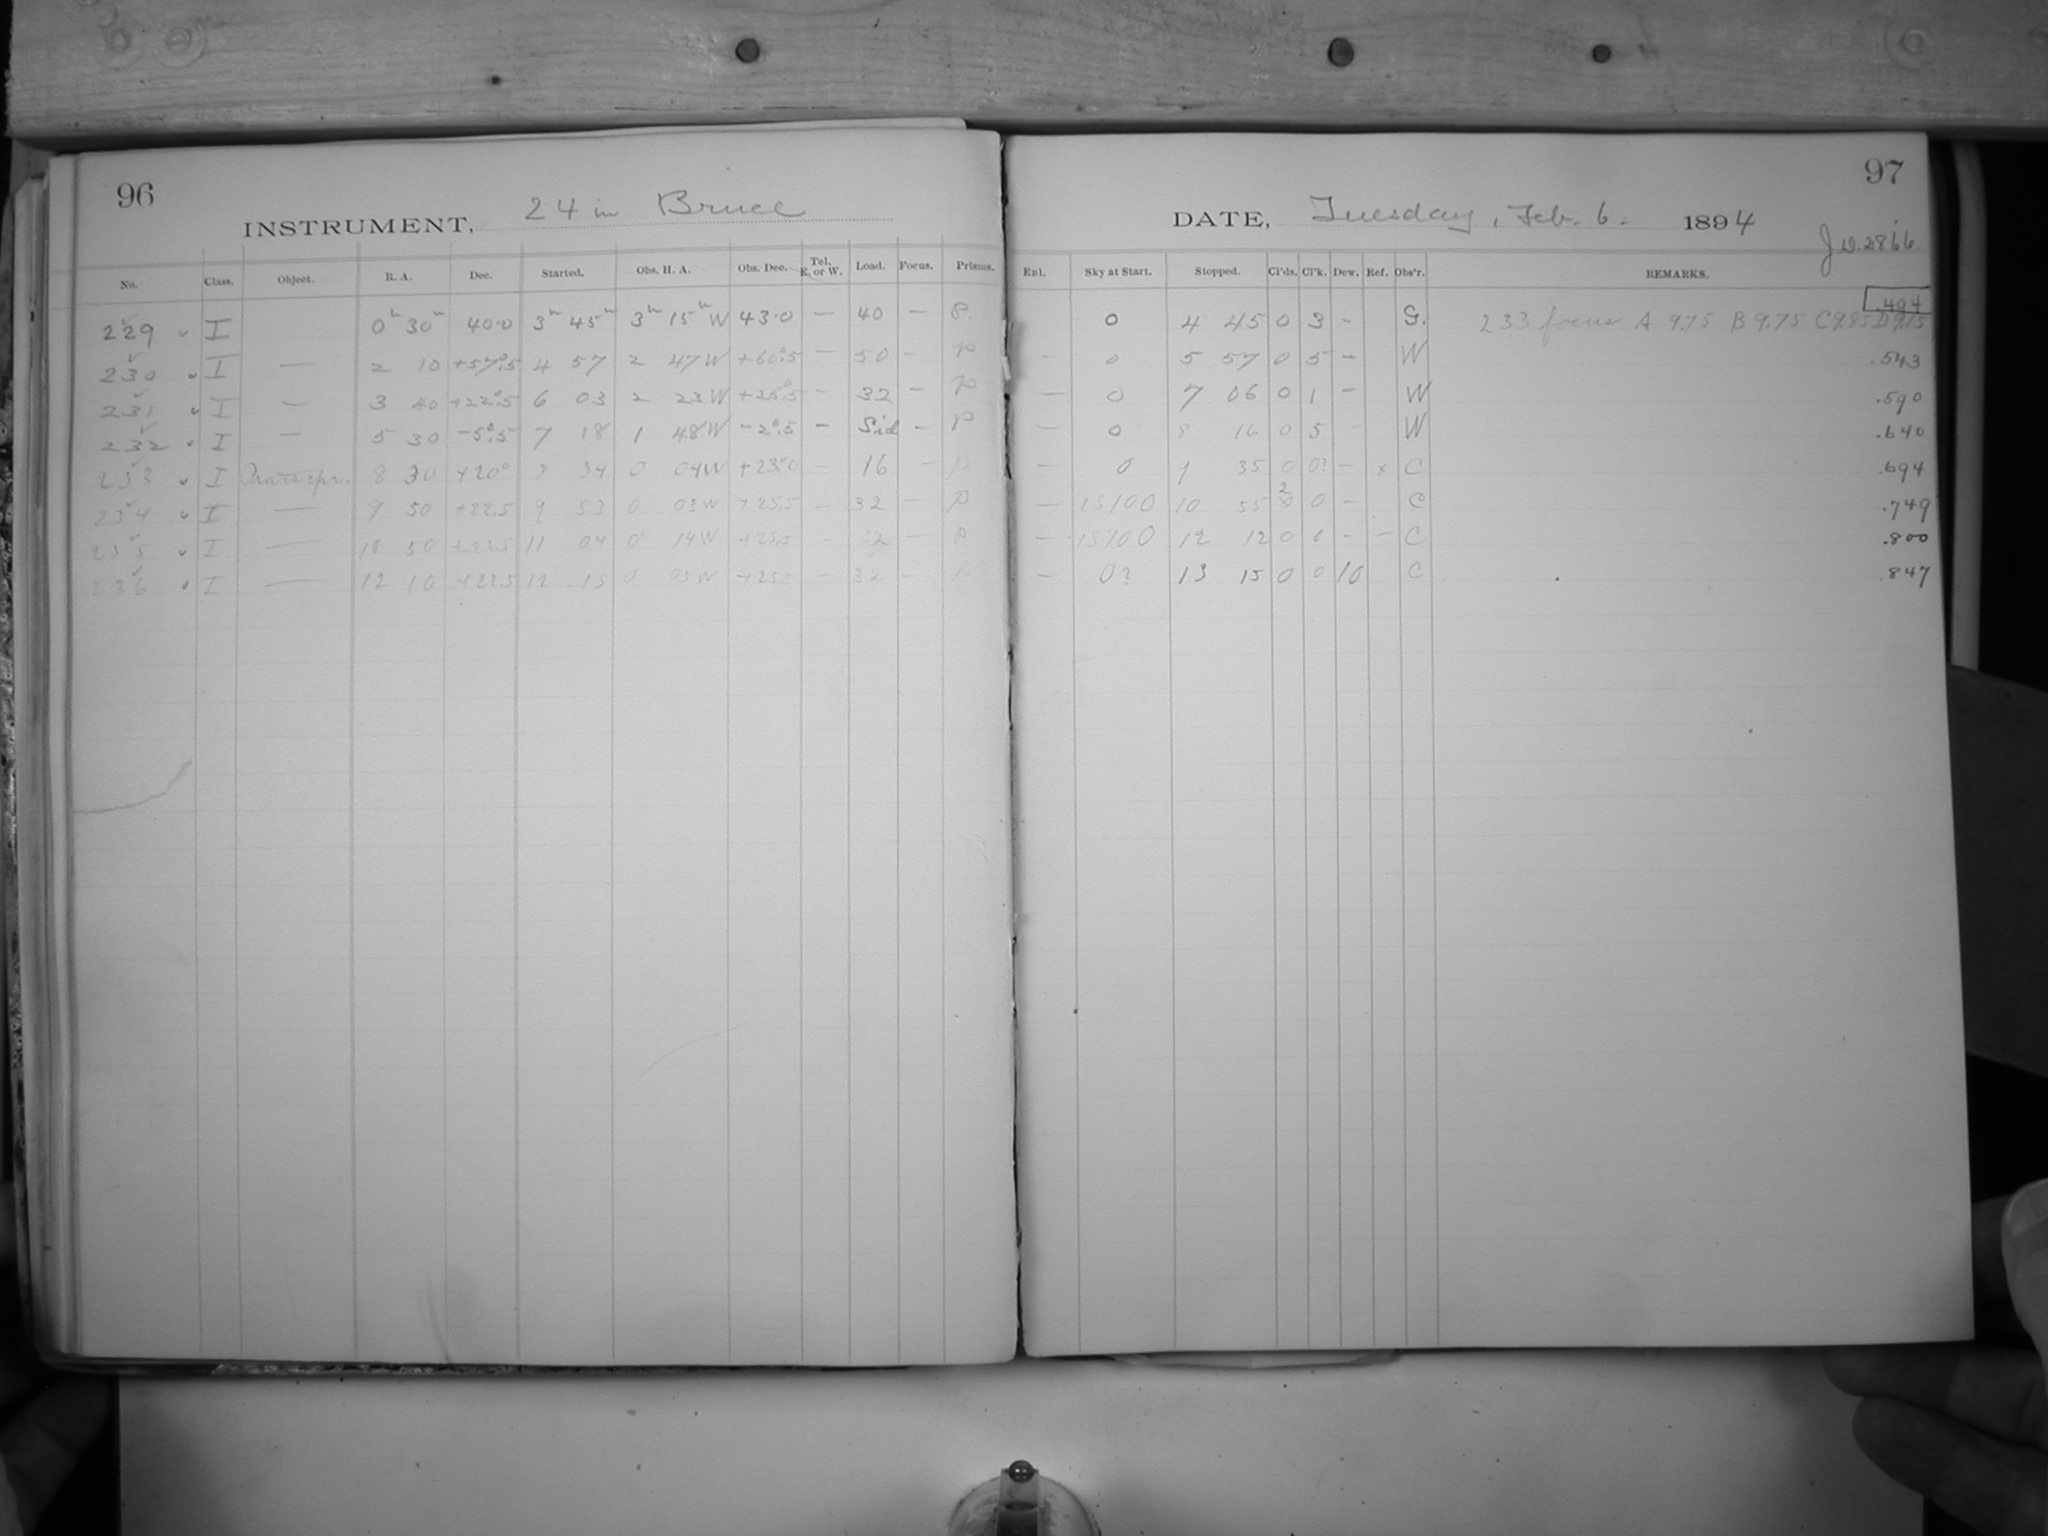 96
INSTRUMENT, 24 in Bruce
No. Class. Object. R. A. Dec. Started. Obs. H. A. Obs. Dec. Tel. E. or W. Load. Focus. Prisms.
229 I 0h 30m 40.0 3h 45m 3h 15m W 43.0 — 40 — P.
230 I — 2 10 +57°.5 4 57 2 47W +60°.5 — 50 — P
231 I — 3 40 +22°.5 6 03 2 23W +25°.5 — 32 — P
232 I — 5 30 -5°.5 7 18 1 48W -2°.5 — Sid — P
233 I 8 30 +20° 8 34 0 04W +23.0 — 16 — P
234 I — 9 50 +22.5 9 53 0 03W +25.5 — 32 — P
235 I — 10 50 +22.5 11 04 0 14W +25.5 — 32 — P
236 I — 12 10 +22.5 12 15 0 05W +25.5 — 32 — P
97
DATE, Tuesday, Feb. 6. 1894
J.D. 2866
Enl. Sky at Start. Stopped. Cl'ds. Cl'k. Dew. Ref. Obs'r. REMARKS.
494
0 4 45 0 3 - G. 233 focus A 9.75 B 9.75 C 9.85 D 9.75
— 0 5 57 0 5 — W .543
— 0 7 06 0 1 — W .590
— 0 8 16 0 5 W .640
— 0 9 35 0 0? — x C .694
— 15100 10 55 0 — C .749
— 15100 12 12 0 0 - — C .800
— 0? 13 15 0 0 10 C .847